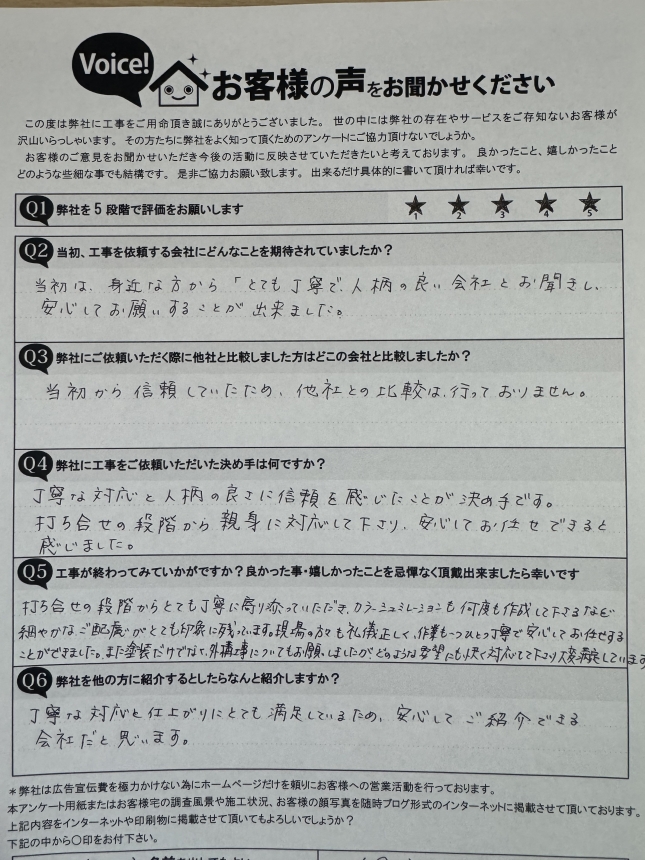 Voice!
お客様の声をお聞かせください
この度は弊社に工事をご用命頂き誠にありがとうございました。 世の中には弊社の存在やサービスをご存知ないお客様が
沢山いらっしゃいます。 その方たちに弊社をよく知って頂くためのアンケートにご協力頂けないでしょうか。
お客様のご意見をお聞かせいただき今後の活動に反映させていただきたいと考えております。 良かったこと、嬉しかったこと
どのような些細な事でも結構です。 是非ご協力お願い致します。 出来るだけ具体的に書いて頂ければ幸いです。
Q1 弊社を5段階で評価をお願いします ★1 ★2 ★3 ★4 ★5
Q2 当初、工事を依頼する会社にどんなことを期待されていましたか?
当初は、身近な方から「とても丁寧で、人柄の良い会社とお聞きし、
安心してお願いすることが出来ました。
Q3 弊社にご依頼いただく際に他社と比較しました方はどこの会社と比較しましたか?
当初から信頼していたため、他社との比較は、行っておりません。
Q4 弊社に工事をご依頼いただいた決め手は何ですか?
丁寧な対応と人柄の良さに信頼を感じたことが決め手です。
打ち合せの段階から親身に対応して下さり、安心してお任せできると
感じました。
Q5 工事が終わってみていかがですか?良かった事・嬉しかったことを忌憚なく頂戴出来ましたら幸いです
打ち合せの段階からとても丁寧に寄り添っていただき、カラーシュミレーションも何度も作成して下さるなど
細やかなご配慮がとても印象に残っています。現場の方々も礼儀正しく、作業も一つひとつ丁寧で安心してお任せする
ことができました。また塗装だけでなく、外構工事についてもお願いしましたが、どのような要望にも快く対応して下さり大変満足しています
Q6 弊社を他の方に紹介するとしたらなんと紹介しますか?
丁寧な対応と仕上がりにとても満足しているため、安心してご紹介できる
会社だと思います。
*弊社は広告宣伝費を極力かけない為にホームページだけを頼りにお客様への営業活動を行っております。
本アンケート用紙またはお客様宅の調査風景や施工状況、お客様の顔写真を随時ブログ形式のインターネットに掲載させて頂いております。
上記内容をインターネットや印刷物に掲載させて頂いてもよろしいでしょうか?
下記の中から〇印をお付下さい。